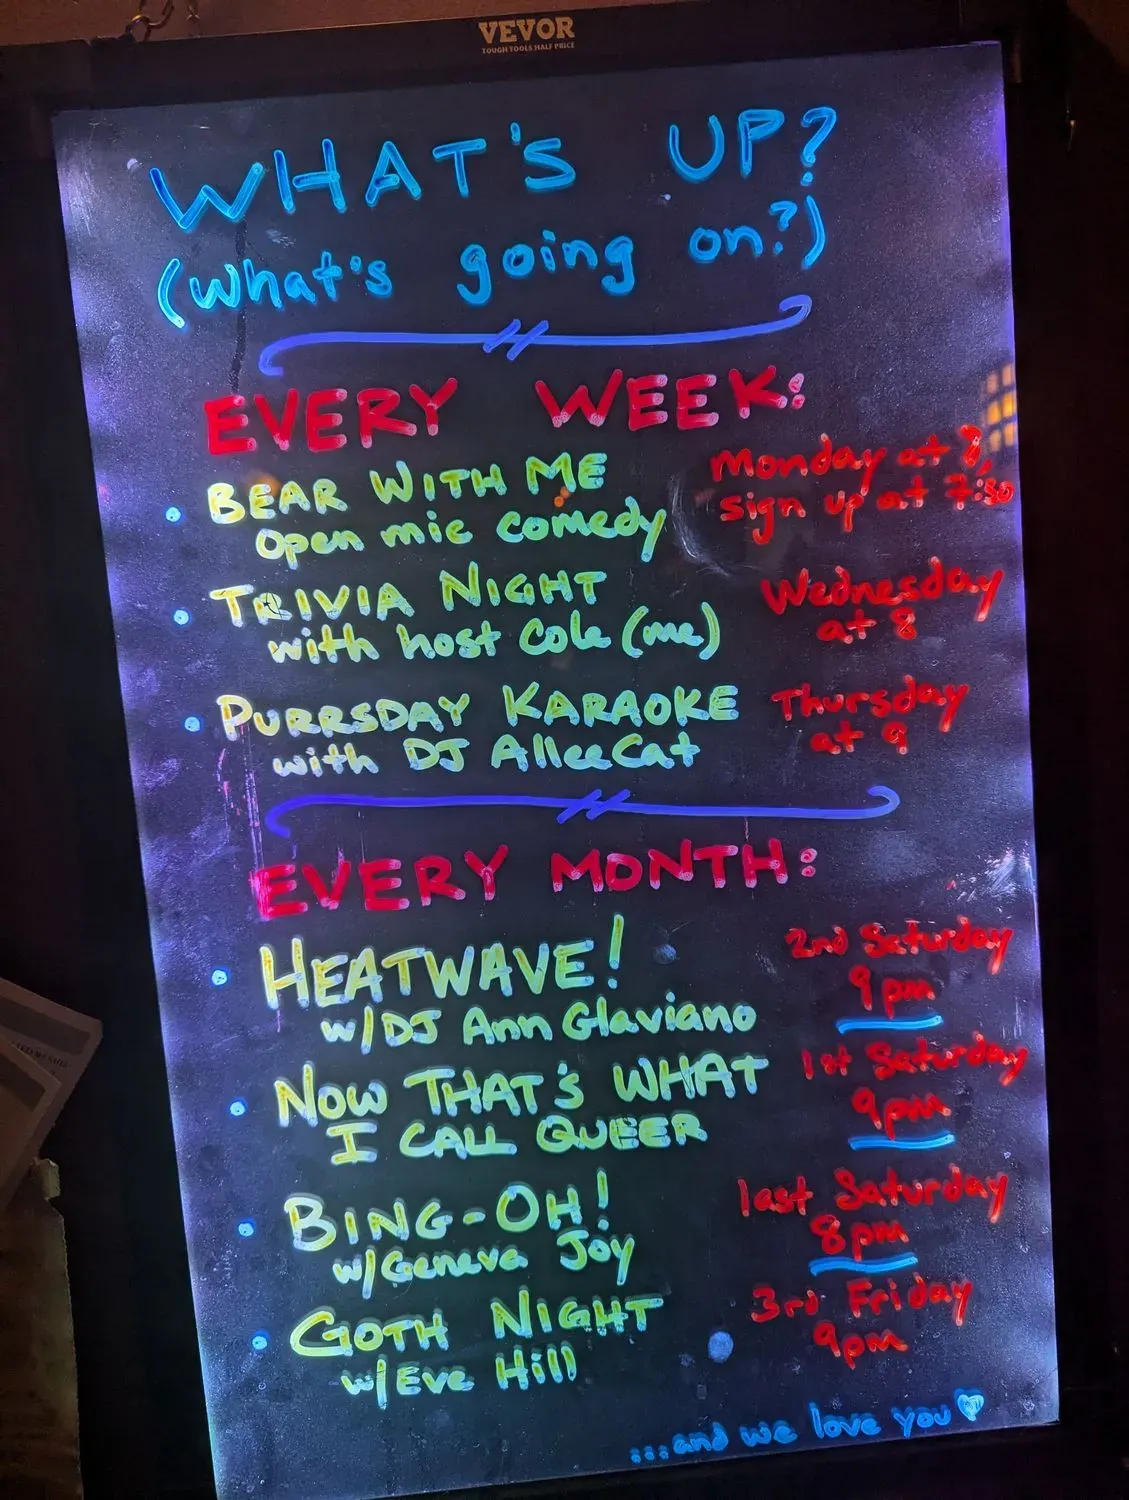 VEVOR
TOUGH TOOLS, HALF PRICE
WHAT'S UP?
(What's going on?)
EVERY WEEK:
BEAR WITH ME
Open mic comedy
Monday at 8,
sign up at 7:30
TRIVIA NIGHT
with host Cole (me)
Wednesday
at 8
PURRSDAY KARAOKE
with DJ AlleeCat
Thursday
at 9
EVERY MONTH:
HEATWAVE!
w/DJ Ann Glaviano
2nd Saturday
9pm
NOW THAT'S WHAT
I CALL QUEER
1st Saturday
9pm
BING-OH!
w/Geneva Joy
last Saturday
8pm
GOTH NIGHT
w/Eve Hill
3rd Friday
9pm
...and we love you